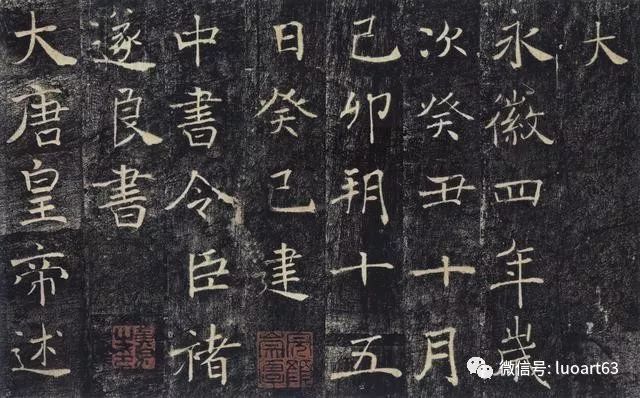 大
永徽四年歲
次癸丑十月
己卯朔十五
日癸巳建
中書令臣褚
遂良書
大唐皇帝述
微信号: luoart63